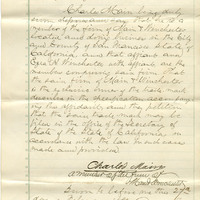 Charles Main being duly
sworn deposes and says that he is a
member of the firm of Main & Winchester
and doing business in the City
and County of San Francisco State of
California, and that affiant and
Geo. H. Winchester with affiant are the
members composing said firm. That
the said firm of Main & Winchester
is the exclusive owner of the trade mark
in the specification accompanying
this affidavit and the petition
that the said trade mark may be
filed in the office of the Secretary
of State of the State of California in
accordance with the law in such cases
made and provided.
Charles Main
a member of the firm of
Main & Winchester
Sworn to before me this